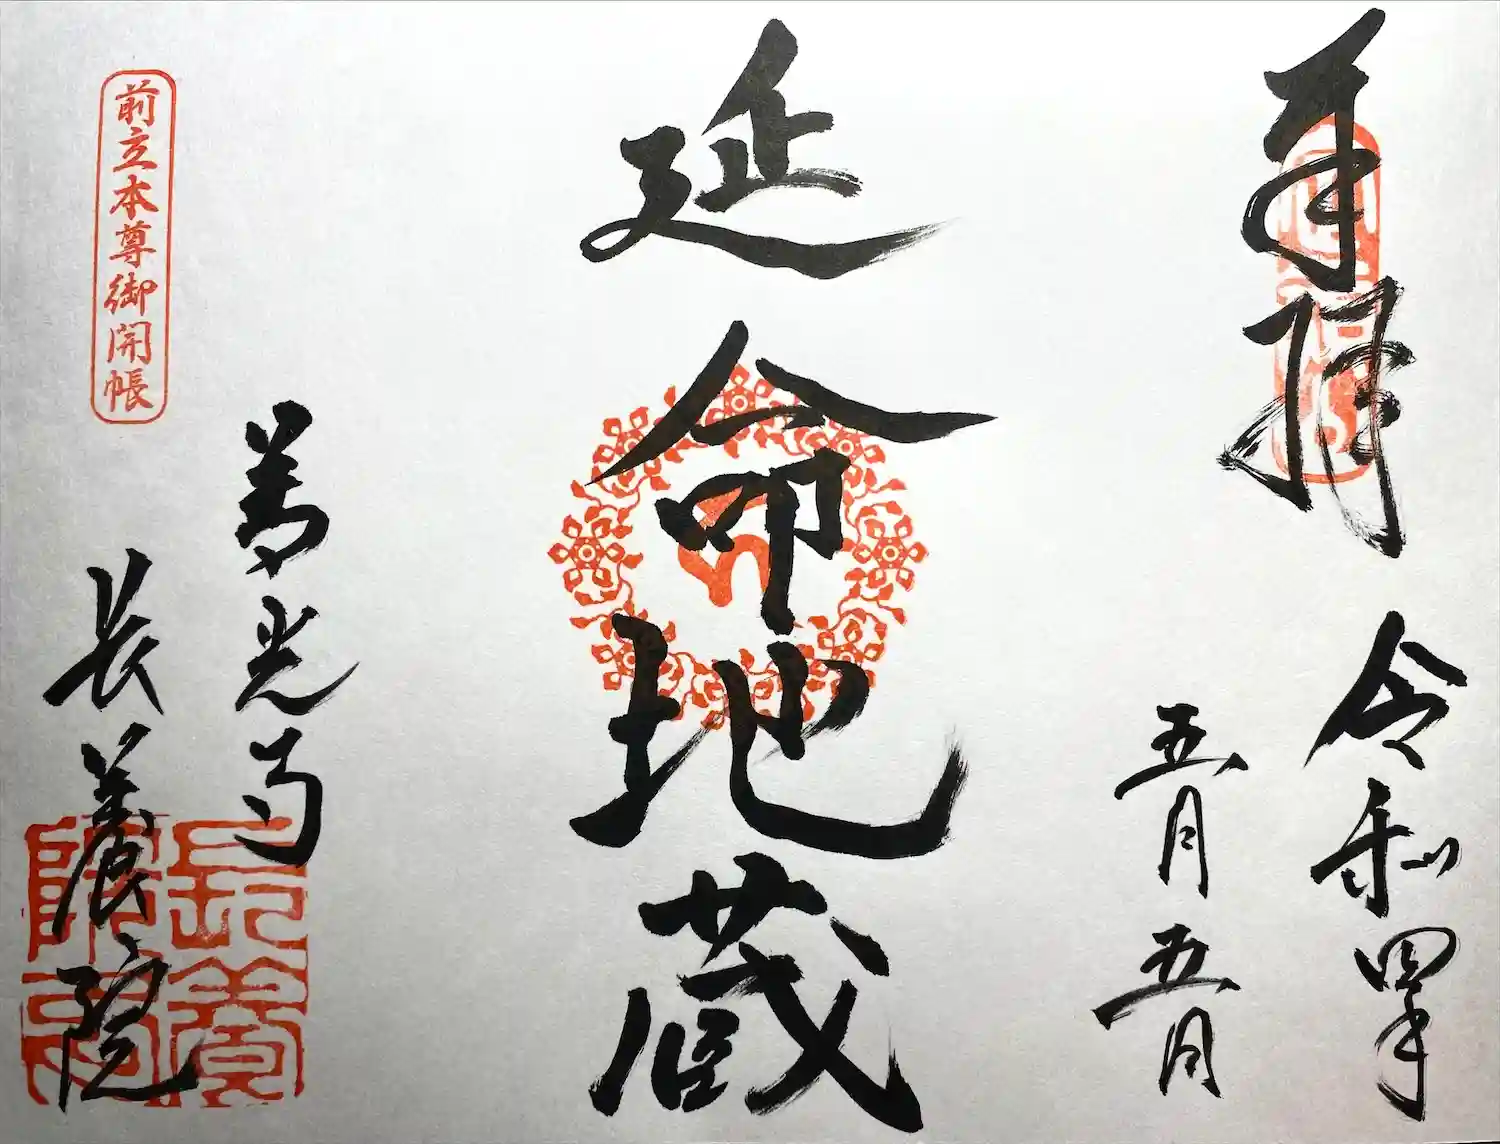 奉拝
令和四年
五月五日
延命地蔵
善光寺
長養院
前立本尊御開帳